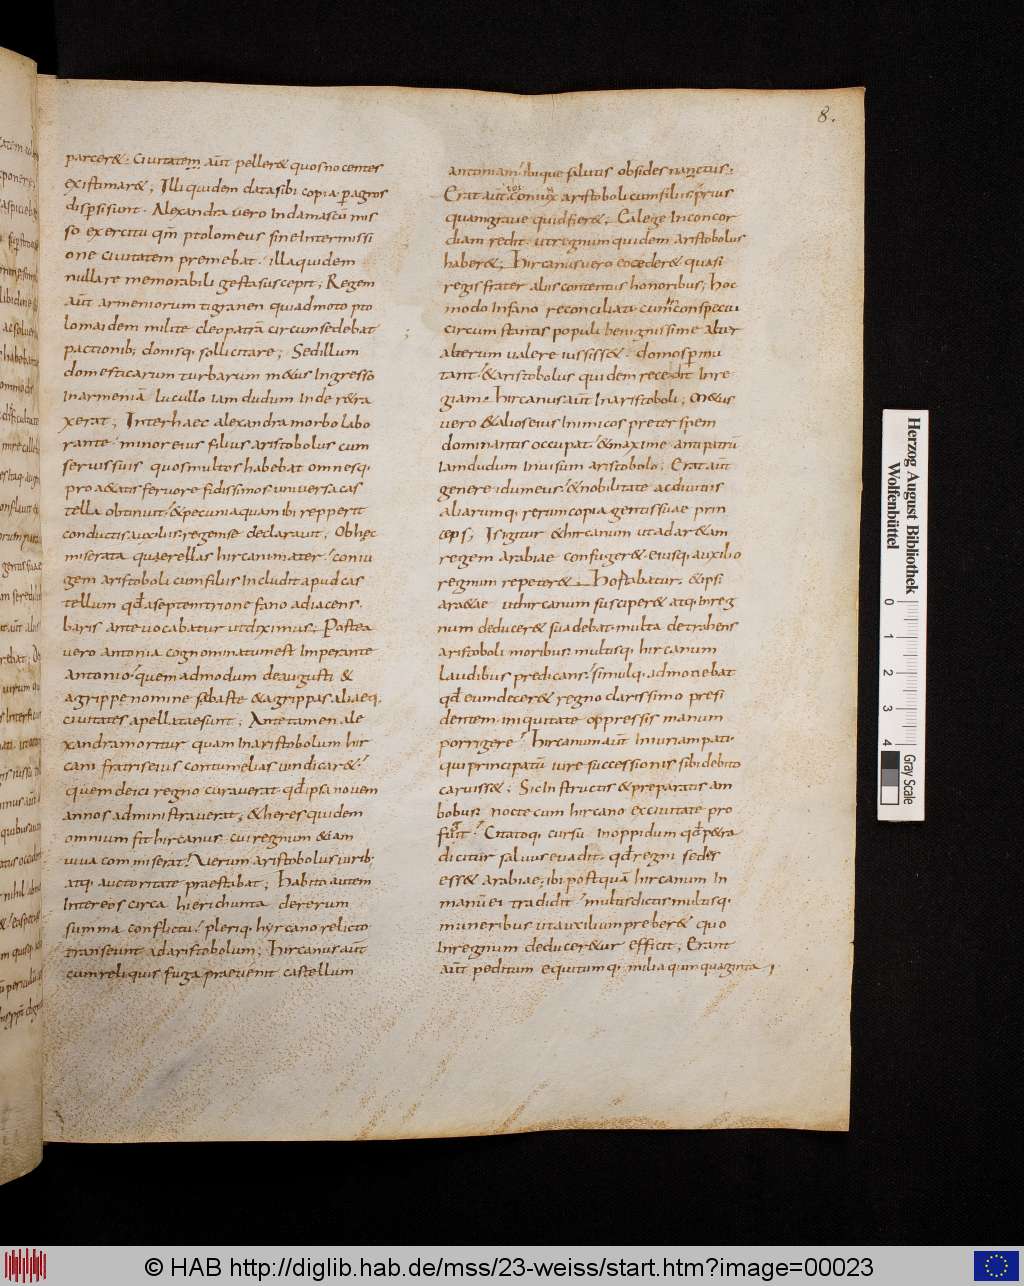 8.
parcer&. Civitatem aut̄ peller& quos nocentes
existimar&; Illi quidem data sibi copia p agros
dispsi sunt. Alexandra vero In damascū mis
so exercitu qm̄ ptolomeus sine Intermissi
one civitatem premebat. illa quidem
nullare memorabili gesta suscepit; Regem
aut̄ armeniorum tigranen qui admoto pto
lomaidem milite cleopatrā circumsedebat
pactionib; donisq. sollicitare; Sed illum
domesticarum turbarum m&us Ingresso
In armeniā lucullo iam dudum Inde r&ra
xerat; Interhaec alexandra morbo labo
rante. minor eius filius aristobolus cum
servis suis quos multos habebat omnesq.
pro a&atis fervore fidissimos universa cas
tella obtinuit. & pecunia quam ibi repperit
conductis auxiliis. regem se declaravit; Ob hęc
miserata quaerellas hircani mater. coniu
gem aristoboli cum filiis Includit apud cas
tellum qđ a septemtrione fano adiacens.
baris ante vocabatur ut diximus. Postea
vero antonia cognominatum est Imperante
antonio. quem admodum de augusti &
agrippe nomine sebaste & agrippas. aliaeq.
civitates apellatae sunt; Ante tamen ale
xandra moritur quam In aristobolum hir
cani fratris eius contumelias vindicar&.
quem deici regno curaverat qđ ipsa novem
annos administraverat; & heres quidem
omnium fit hircanus cui regnum &iam
viva commiserat. Verum aristobolus virib;
atq. auctoritate praestabat; habito autem
Inter eos circa hierichunta de rerum
summa conflictu. pleriq. hyrcano relicto
transeunt ad aristobolum; hircanus aut̄
cum reliquis fuga praevenit castellum
;
antoniam. ibique salutis obsides nanctus.
Erat aut̄ coniux aristoboli cum filiis prius
quam grave quid fier&; Cal ege In concor
diam redit. ut regnum quidem aristobolus
haber&; Hircanus vero eo ceder& quasi
regis frater aliis contentus honoribus; hoc
modo In fano reconciliati cum conspectu
circum stantis populi benignissime alter
alterum valere iussiss&. domos p mu
tant. & aristobolus quidem recedit In re
giam. hircanus aut̄ In aristoboli; M&us
vero & alios eius Inimicos preter spem
dominantis occupat. & maxime antipatrū
Iam dudum Invisum aristobolo; Erat aut̄
genere idumeus. & nobilitate ac divitiis
aliarumq. rerum copia gentis suae prin
ceps; Is igitur & hircanum ut ad ar&am
regem arabiae confuger& eiusq. auxilio
regnum repeter& hostabatur. & ipsi
ara&ae ut hircanum susciper& atq. In reg
num deducer& suadebat. multa detrahens
aristoboli moribus. multisq. hircanum
laudibus predicans. simulq. admonebat
qđ eum decer& regno clarissimo presi
dentem. iniquitate oppressis manum
porrigere. hircanum aut̄ Iniuriam pati.
qui principatū iure successionis sibi debito
caruiss&; Sic Instructis & preparatis am
bobus. nocte cum hircano ex civitate pro
fugit. Citatoq. cursu In oppidum qđ p&ra
dicitur salvus evadit. qđ regni sedes
ess& arabiae; ibi postquā hircanum In
manū ei tradidit. multis dictis multisq.
muneribus ut auxilium preber& quo
In regnum deducer&ur efficit; Erant
aut̄ peditum equitumq. milia quinquaginta
Herzog August Bibliothek
Wolfenbüttel
0 1 2 3 4
Gray Scale
© HAB http://diglib.hab.de/mss/23-weiss/start.htm?image=00023